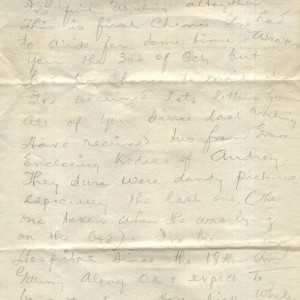 quit writing altogether
This is first chance I've had
to write for some time. Wrote
you the 3rd of Oct but
I've received lot. letters from
all of you since last writing
Have received two from Grace
enclosing kodaks of Audrey
They sure were dandy pictures
especially the last one (the
one taken when she was lying
on the bed). I've been in
Hospital since the 18th am
getting along OK & expect to
while